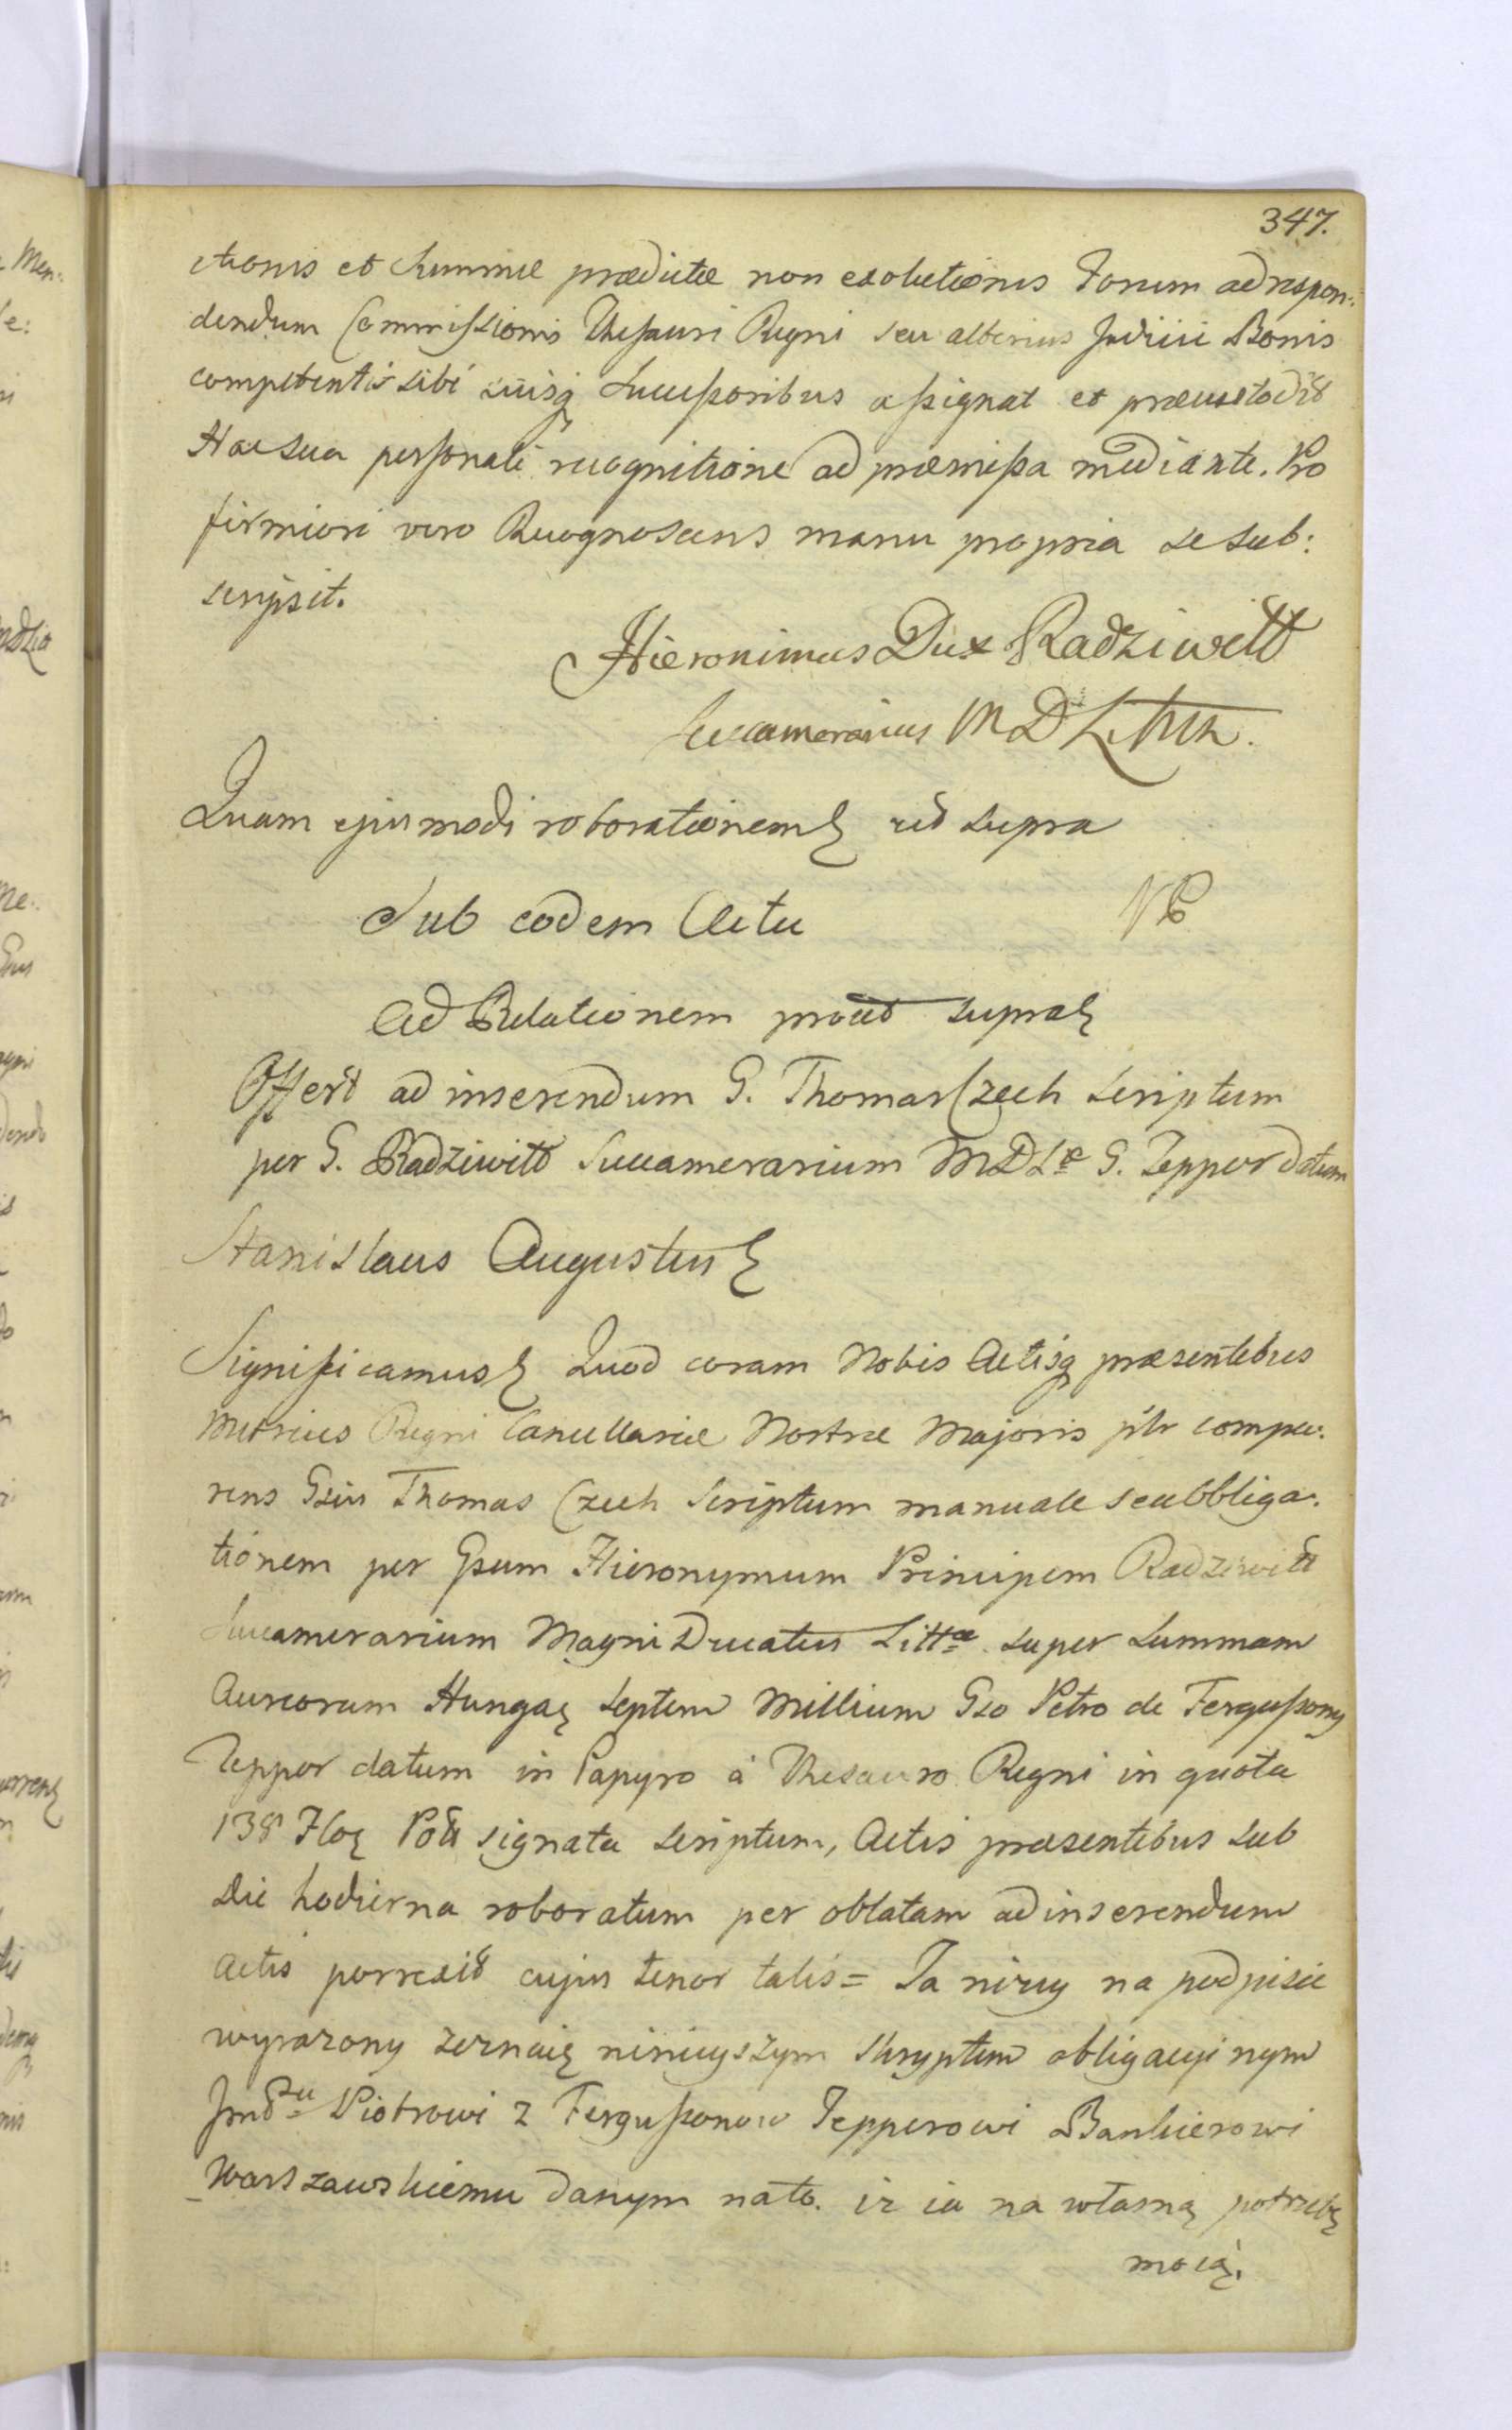 347.
ctionis et Summæ prædictæ non exolutionis Forum ad respon:
dendum Commissionis Thesauri Regni seu alterius Judicii Bonis
competentis sibi suisq Successoribus assignat et præcustodit
Hac sua personali recognitione ad præmissa mediante. Pro
firmiori vero Recognoscens manu propria se sub:
scripsit.
Hieronimus Dux Radziwiłł
Succamerarius MDLithn.
Quam ejusmodi roborationem ut supra
Sub eodem Actu
Ad Relationem prout supra
Offert ad inserendum G. Thomas Czech Scriptum
per G. Radziwiłł Succamerarium MDLæ G. Tepper datum
Stanislaus Augustus
Significamus Quod coram Nobis Actisq præsentibus
Metrices Regni Cancellariæ Nostræ Majoris pltr compa:
rens Gsus Thomas Czech Scriptum manuale seu Obliga:
tionem per Gsum Hieronymum Principem Radziwiłł
Succamerarium Magni Ducatus Littæ super Summam
Aureorum Hungaę Septem Millium Gso Petro de Fergusson
Tepper datum in Papyro à Thesauro Regni in quota
138 Floę Poll signata scriptum, Actis præsentibus sub
Die hodierna roboratum per oblatam ad inserendum
Actis porrexit cujus tenor talis = Ja niżey na podpisie
wyrażony zeznaię ninieyszym Skryptem obligacyinym
JmPzu Piotrowi z Fergussonow Tepperowi Bankierowi
Warszawskiemu danym nato. iż ia na własną potrzebę
moią.